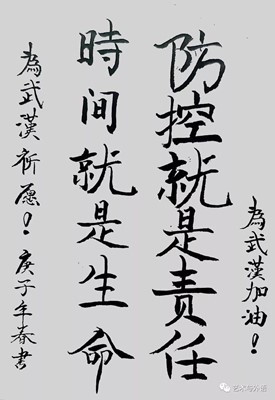 為武漢加油！
防控就是责任
時间就是生命
為武漢祈愿！庚子年春書
艺术与外延